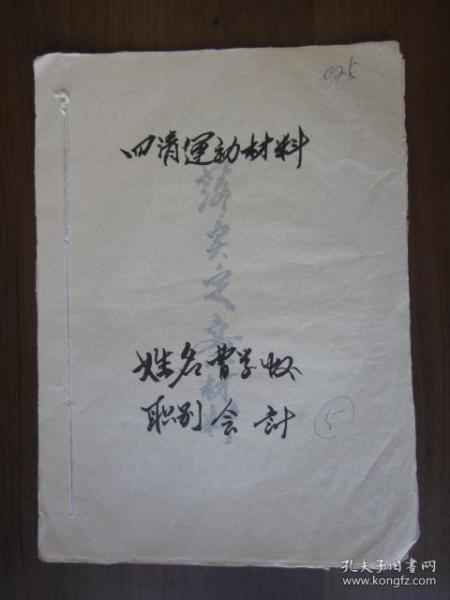 025
四清運动材料
落实定案材料
姓名曹学牧
职别会計
5
孔夫子旧书网
www.kongfz.com